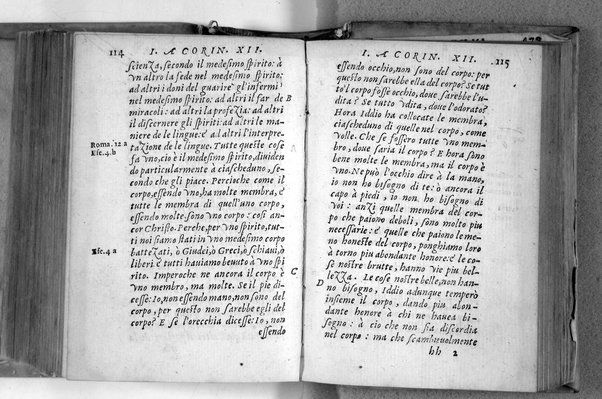 114 I. A CORIN. XII.
scienza, secondo il medesimo spirito: à
vn altro la fede nel medesimo spirito:
ad altri i doni del guarire gl'infermi
nel medesimo spirito: ad altri il far de B
miracoli: ad altri la profezia: ad altri
il discernere gli spiriti: ad altri le ma
niere de le lingue: è ad altri l'interpre
Roma. 12 a tazione de le lingue. Tutte queste cose
Efe. 4. b fa vno, cio è il medesimo spirito, diuiden
do particularmente à ciascheduno, se-
condo che gli piace. Percioche come il
corpo, essendo vno, ha molte membra, è
tutte le membra di quell'uno corpo,
essendo molte, sono vno corpo: cosi an-
cor Christo. Perche, per vno spirito, tut-
ti noi siamo stati in vno medesimo corpo
Efe. 4 a battezati, ò Giudei, ò Greci, ò Schiaui, ò
liberi è tutti haniamo beuuto à vno spi
rito. Imperoche ne ancora il corpo è C
vno membro, ma molte. Se il piè di-
cesse: Io, non essendo mano, non sono del
corpo, per questo non sarebbe egli del
corpo? E se l'orecchia dicesse: Io, non
essendo
I. A CORIN. XII. 115
essendo occhio, non sono del corpo: per
questo non sarebbe ella del corpo? Se tut
to'l corpo fosse occhio, doue sarebbe l'u-
dita? Se tutto vdita, doue l'odorato?
Hora Iddio ha collocate le membra,
ciascheduno di quelle nel corpo, come
volle. Che se fossero tutte vno mem-
bro, doue saria il corpo? E hora sono
bene molte le membra, ma il corpo è
vno. Ne può l'occhio dire à la mano,
io non ho bisogno di te: ò ancora il
capo à piedi, io non ho bisogno di
voi: anzi quelle membra del cor-
po che paiono deboli, sono molto piu
necessarie: è quelle che paiono le me-
no honeste del corpo, ponghiamo loro
à torno piu abondante honore: è le co-
se nostre brutte, hanno vie piu bel-
lezza. Le cose nostre belle, non han-
D no bisogno, Iddio adunque temperò
insieme il corpo, dando piu abon-
dante honore à chi ne hauea bi-
sogno: à ciò che non sia discordia
nel corpo: ma che scambieuolmente
hh 2